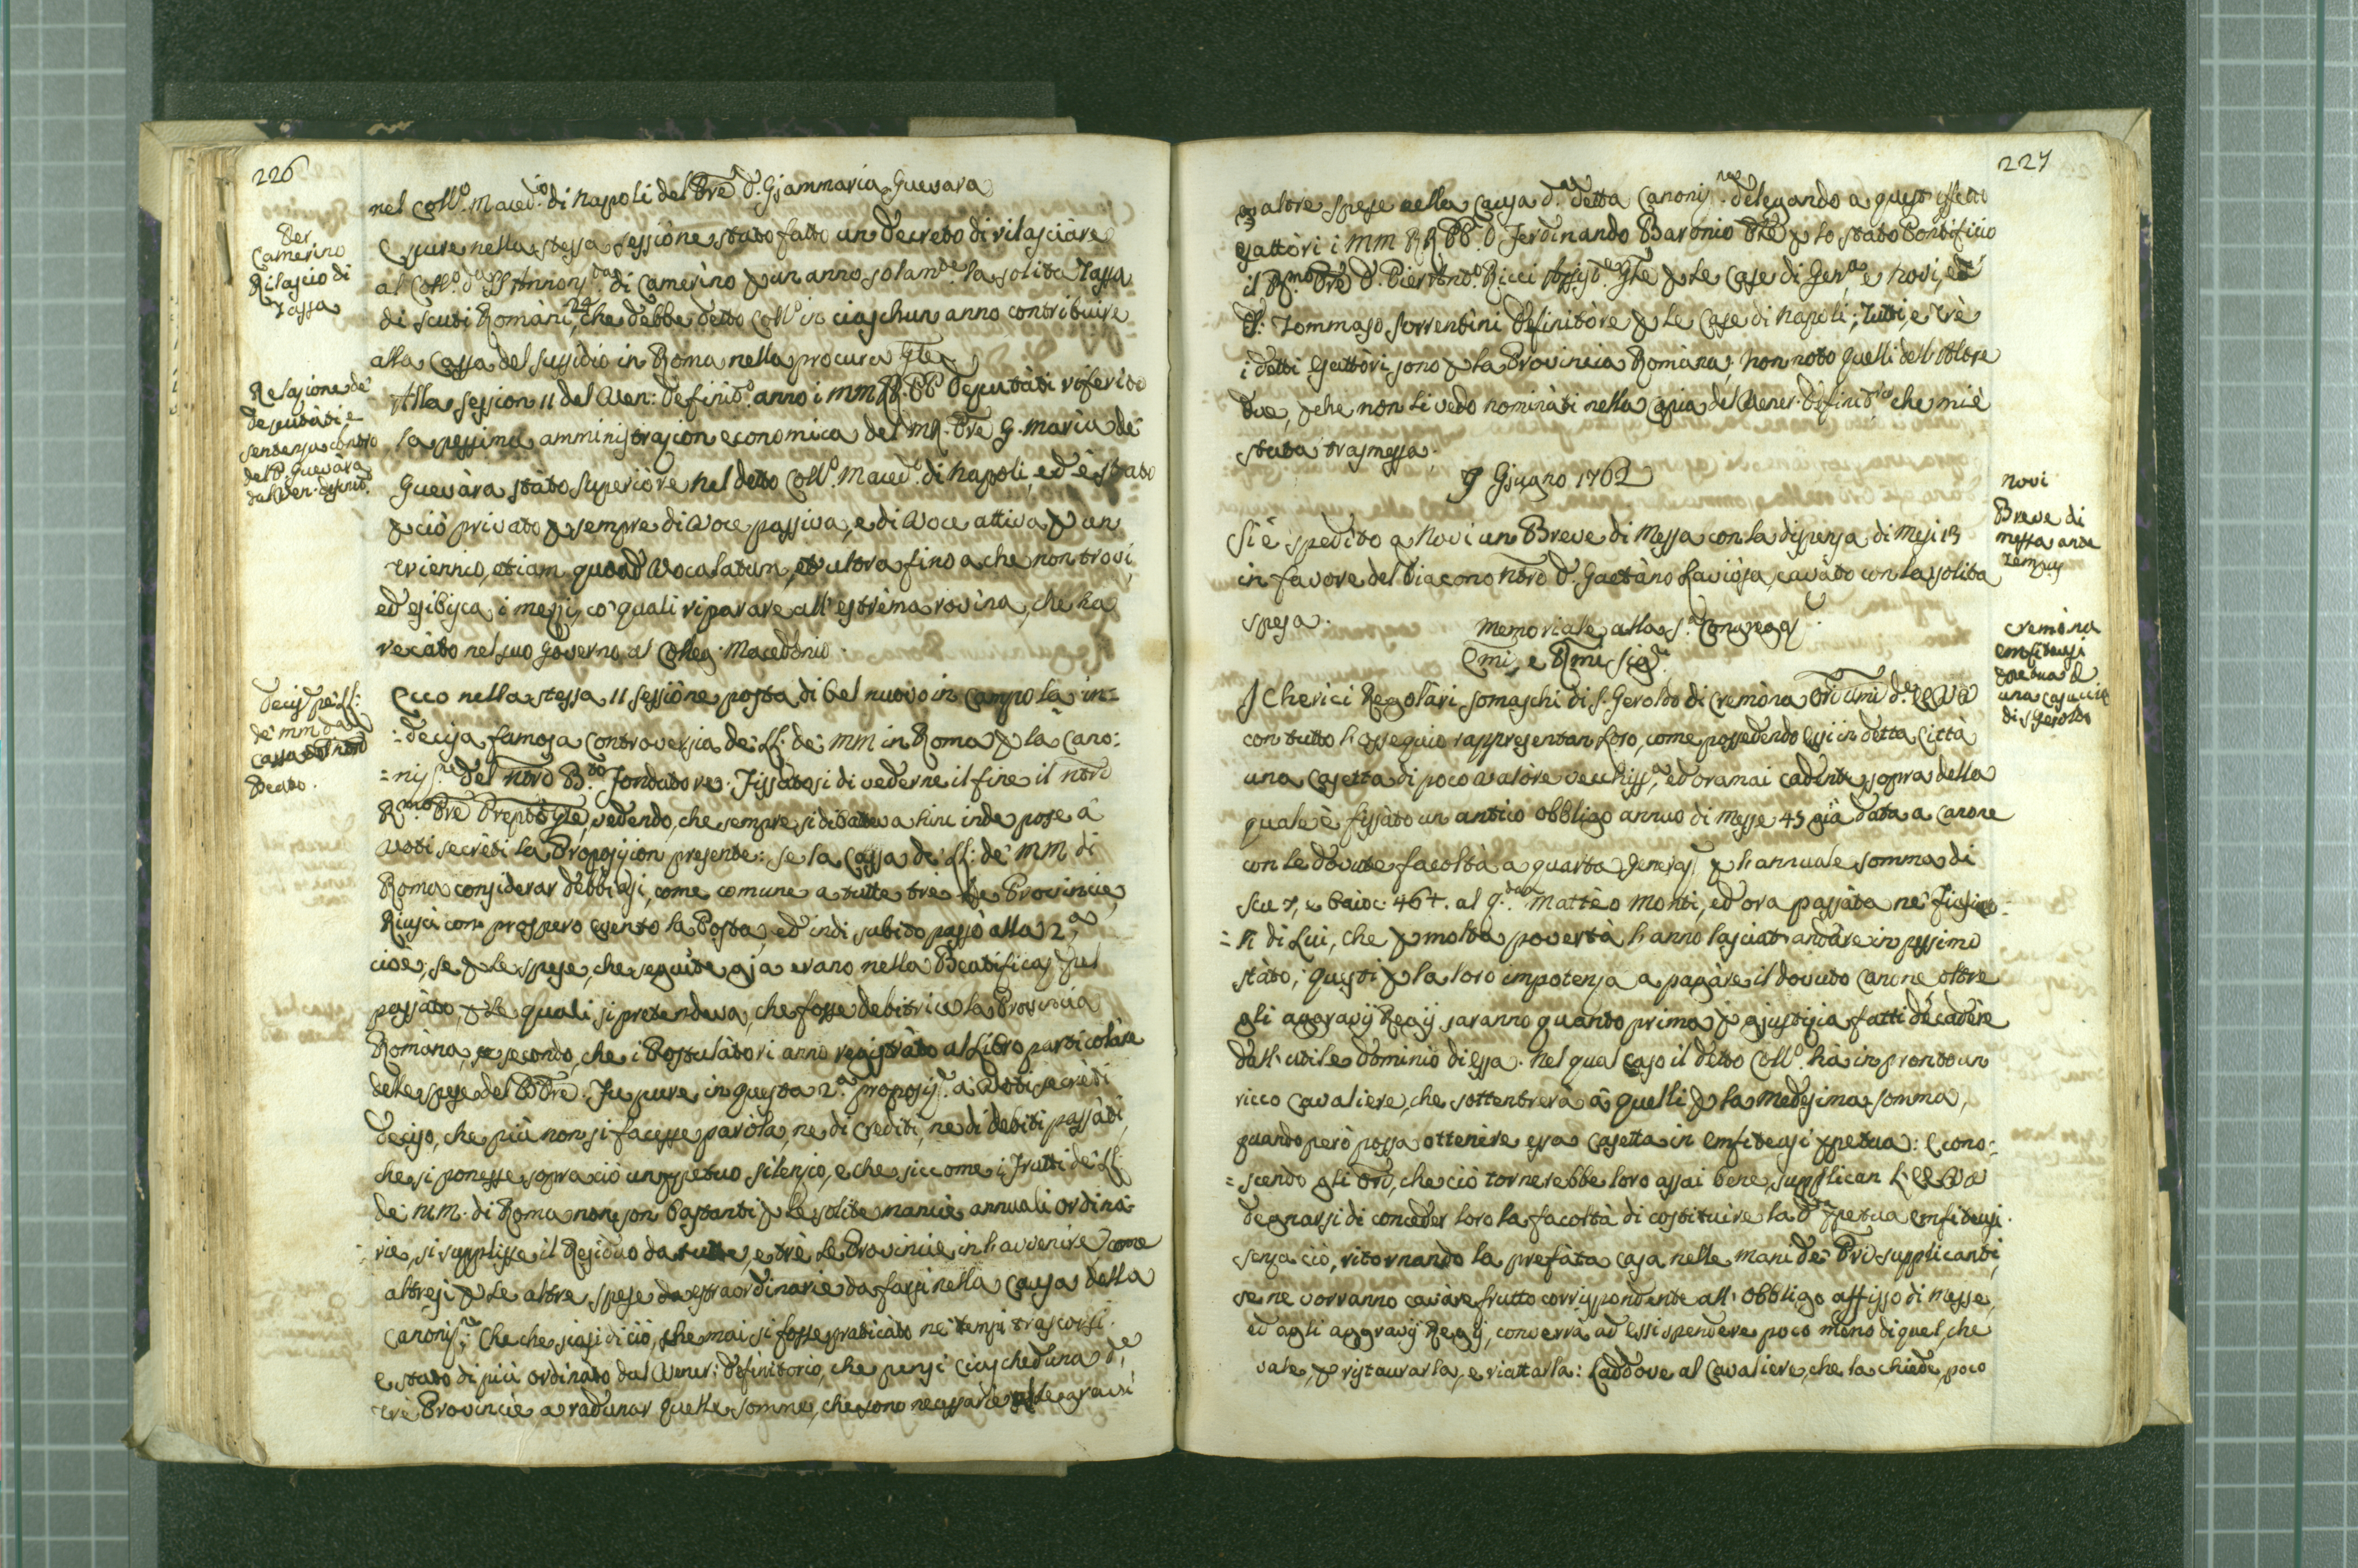 226
nel Coll.o Maced.io di Napoli del Pre D. Giammaria Guevara
Per
Camerino
Rilascio di
Tassa
E pure nella stessa sessione stato fatto un Decreto di rilasciare
al Coll.o SS. Annonz.ta di Camerino p un anno solam.te la solita Tassa
di scuti Romani 24 che debbe detto Coll.o in ciaschun anno contribuire
alla Cassa del sussidio in Roma nella procura Gle
Relazione de'
deputati, e
sentenza contro
del P. Guevara
dal Ven. definit.o
Alla session 11 del Ven: Definit.o anno i MM RR. PP Deputati riferito
la pessima amministrazion economica del M.R. Pre G. Maria de
Guevàra stato Superiore nel detto Coll.o Maced.o di Napoli, ed è stato
p ciò privato p sempre di Voce passiva, e di Voce attiva p un
triennio, etiam quoad Vocalatum, et ultra fino a che non trovi,
ed esibisca i mezzi, co' quali riparare all' estrèma rovina, che ha
recàto nel suo Governo al Colleg. Macedonio.
Decis pe' LL:
de' MM da
Cassa del nrõ
Beato.
Ecco nella stessa 11 sessiòne posta di bel nuovo in campo la in=
=decisa famosa Controversia de' LL: de' MM in Roma p la Cano:
=niz.ne del nrõ B.to Fondatore. Fissatosi di vederne il fine il nrõ
R.mo Pre Prepõs Gle, vedendo, che sempre si dibatteva hinc inde pose a
voti secrèti la Proposizion presente: se la Cassa de' LL: de' MM di
Roma considerar debbiasi, come comune a tutte tre le Provincie,
Riuscì con prospero evento la Posta, ed indi subito passò alla 2.a
cioè; se p le spese, che seguite già erano nella Beatificaz pel
passàto, p le quali si pretendeva, che fosse debitrice la Provincia
Romàna, secondo, che i Postulàtori anno registràto al Libro particolàre
delle spese del B Pre. Fu pure in questa 2.a proposiz.e a' Voti secrèti
deciso, che più non si facesse parola, ne di crediti, ne di debiti passàti,
che si ponesse sopra ciò un ppetuo silenzio, e che siccome i frutti de' LL:
de' MM. di Roma non son bastanti p le solite mancie annuali ordina=
=rie, si supplisse il Residuo da tutte, e trè le Provincie in havvenire come
altresì p le altre spese da straordinarie da farsi nella Causa della
Canoniz.ne; Che che siasi di ciò, che mai si fosse praticàto ne' tempi trascorsi.
È stato di più ordinato dal Vener: Definitorio, che pensi ciascheduna de'
trè Provincie a radunar quelle somme, che sono necessarie alle gravi
227
ed altre spese nella Causa d.a detta Canoniz.ne delegando a quest' effetto
Esattòri i MM RR PP. D. Ferdinando Baronio Pre p lo stato Pontificio
il R.mo Pre D. Pier Ant.o Ricci Assist.e Gle p le Case di Gen.a e Novi, ed
D. Tommaso Sorrentini Definitòre p le Case di Napoli; Tutti, e trè
i detti Esattòri sono p la Provincia Romàna; non noto quelli dell' Altre
due, p che non li vedo nominàti nella copia del Vener. Definit.rio che mi è
stata trasmessa.
9 Giugno 1762
Novi
Breve di
messa ante
Tempus
Si è spedìto a Novi un Breve di Messa con la dispensa di Mesi 13
in favore del Diacono nrõ D. Gaetàno Laviòsa, cavàto con la solita
spesa.
Memoriale alla S. Congregaz.
Emi, e Rmi Sig.ri
Cremòna
Emfiteusi
ppetua d
una casuccia
di S Geroldo
I Cherici Regolàri Somaschi di S. Geroldo di Cremòna Ori umi d.e EE VV
con tutto h'ossequio rappresentan loro, come possedendo essi in detta Città
una Casetta di poco valòre vecchiss.a, ed oramai cadente, sopra della
quale è fissàto un antico obbligo annuo di Messe 45 già data a Canone
con le dovute facoltà a quarta Generaz. p h'annuale somma di
scu 7, e baioc. 46+. al q.dam Mattèo Monti, ed ora passàta ne' figliuo=
=li di Lui, che p molta povertà h'anno lasciat' andàre in pessimo
stàto; questi p la loro impotenza a pagàre il dovuto canone oltre
gli aggravj Regij saranno quanto prima p giustizia fatti decadère
dall' utile dominio di essa. Nel qual caso il detto Coll.o hà in pronto un
ricco Cavaliere, che sottentrerà a quelli p la medesima somma,
quando però possa ottenère essa Casetta in emfiteusi ppetua: E cono=
=scendo gli Ori, che ciò tornerebbe loro assai bene, supplican L' EE VV
degnarsi di conceder loro la facoltà di costituire la d.a ppetua Emfiteusi.
senza ciò, ritornando la prefàta casa nelle mani de' Pri supplicanti,
se ne vorranno cavàre frutto corrispondente all' obbligo affisso di Messe,
ed agli aggravj Regij, converrà ad essi spendere poco meno di quel, che
vale, p ristaurarla, e riattarla: Laddove al Cavaliere, che la chiede, poco